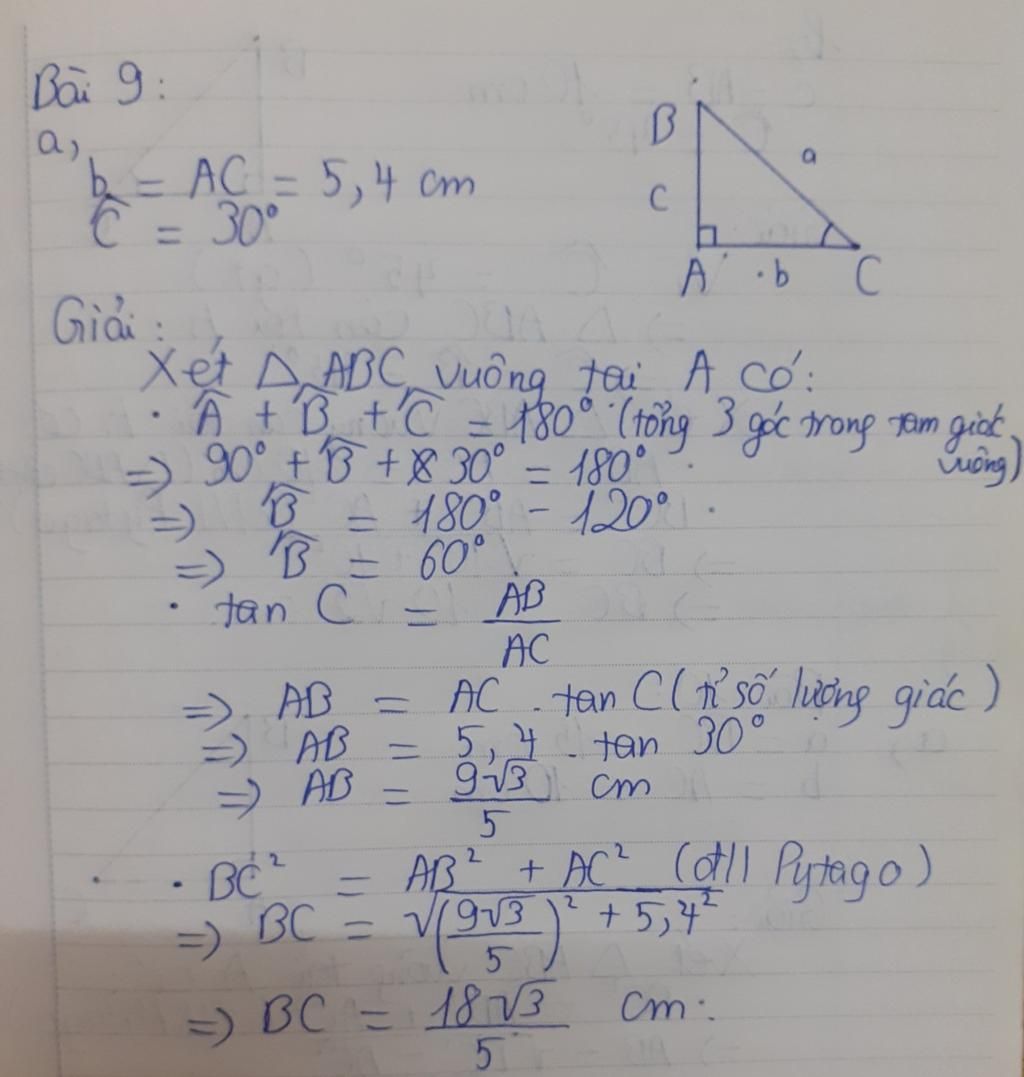 Bài 9:
a,
b = AC = 5,4 cm
Ĉ = 30°
B
a
c
A
b
C
Giải:
Xét △ ABC vuông tại A có:
· Â + B̂ + Ĉ = 180° (tổng 3 góc trong tam giác
vuông)
=> 90° + B̂ + 30° = 180°
=> B̂ = 180° - 120°
=> B̂ = 60°
· tan C = AB/AC
=> AB = AC . tan C (tỉ số lượng giác)
=> AB = 5,4 . tan 30°
=> AB = 9√3/5 cm
· BC² = AB² + AC² (đ/l Pytago)
=> BC = √((9√3/5)² + 5,4²)
=> BC = 18√3/5 cm.